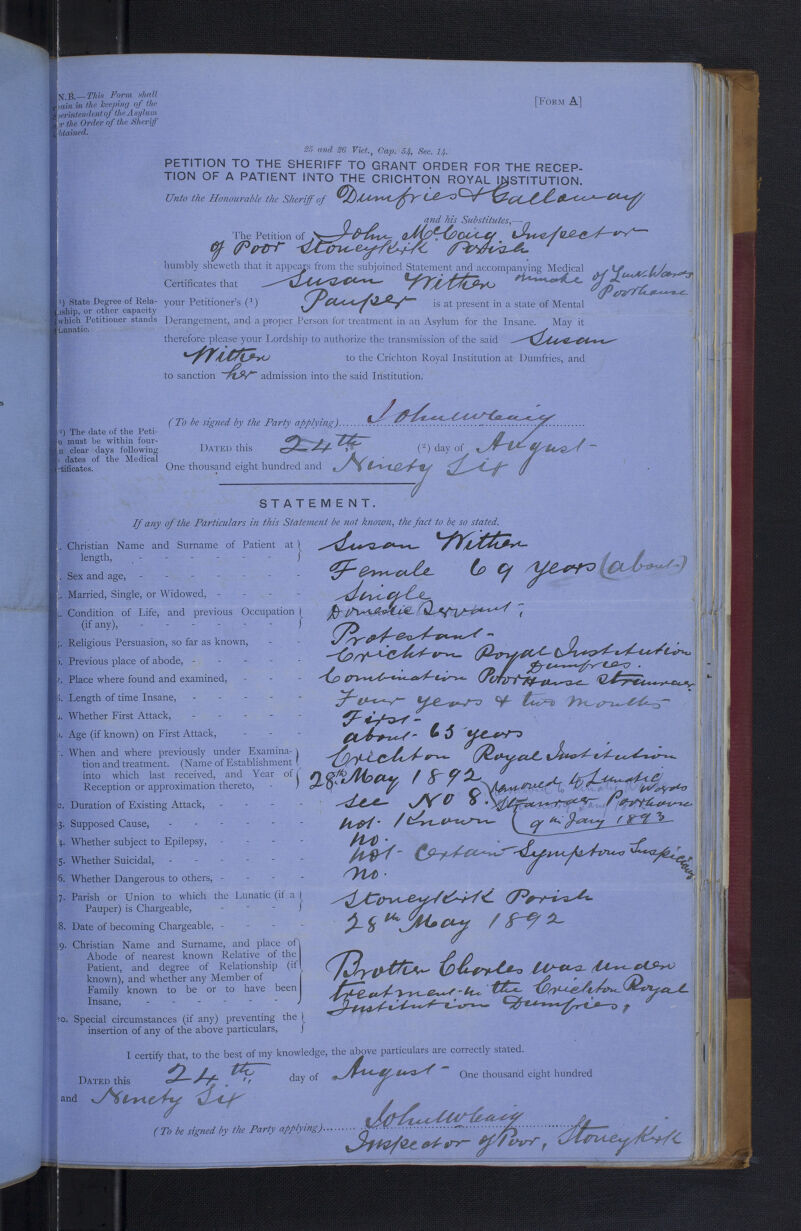 N.B.—This Form shall
in the keeping of the
of the Asylum
the Order of the Sheriff
obtained.
[FORM A]
25 and 26 Vict., Cap. 54, Sec. 14.
PETITION TO THE SHERIFF TO GRANT ORDER FOR THE RECEP-
TION OF A PATIENT INTO THE CRICHTON ROYAL INSTITUTION.
Unto the Honourable the Sheriff of Dumfries & Galloway
and his Substitutes,—
The Petition of John McCaig Inspector
of Poor Stoneykirk Parish
humbly sheweth that it appears from the subjoined Statement and accompanying Medical
Certificates that Susan Wither inmate of Lun. Wards
Poorhouse
(1) State Degree of Rela-
tionship, or other capacity
which Petitioner stands
Lunatic.
your Petitioner's (1) Pauper is at present in a state of Mental
Derangement, and a proper Person for treatment in an Asylum for the Insane. May it
therefore please your Lordship to authorize the transmission of the said Susan
Wither to the Crichton Royal Institution at Dumfries, and
to sanction her admission into the said Institution.
(To be signed by the Party applying) John McCaig
(2) The date of the Peti-
must be within four-
clear days following
dates of the Medical
Certificates.
DATED this 24th (2) day of August
One thousand eight hundred and Ninety Six
STATEMENT.
If any of the Particulars in this Statement be not known, the fact to be so stated.
Christian Name and Surname of Patient at length, Susan Wither
Sex and age, Female 69 years (about)
Married, Single, or Widowed, Single
Condition of Life, and previous Occupation (if any), Domestic Servant
Religious Persuasion, so far as known, Protestant
Previous place of abode, Crichton Royal Institution Dumfries.
Place where found and examined, Combination Poorhouse Stranraer
Length of time Insane, Four years & two months
Whether First Attack, First
Age (if known) on First Attack, about 65 years
When and where previously under Examina-
tion and treatment. (Name of Establishment
into which last received, and Year of
Reception or approximation thereto, Crichton Royal Institution
28th May 1892
removed to Lunatic Wards
Stranraer Poorhouse
9th Jany 1893
2. Duration of Existing Attack, See No 8.
3. Supposed Cause, not known
4. Whether subject to Epilepsy, no.
5. Whether Suicidal, not certain Symptons Suspicious
6. Whether Dangerous to others, no.
7. Parish or Union to which the Lunatic (if a Pauper) is Chargeable, Stoneykirk Parish
8. Date of becoming Chargeable, 28th May 1892
9. Christian Name and Surname, and place of
Abode of nearest known Relative of the
Patient, and degree of Relationship (if
known), and whether any Member of
Family known to be or to have been
Insane, Brother Charles was under
treatment in the Crichton Royal
Institution Dumfries,
20. Special circumstances (if any) preventing the
insertion of any of the above particulars,
I certify that, to the best of my knowledge, the above particulars are correctly stated.
DATED this 24th day of August One thousand eight hundred
and Ninety Six
(To be signed by the Party applying) John McCaig
Inspector of Poor, Stoneykirk